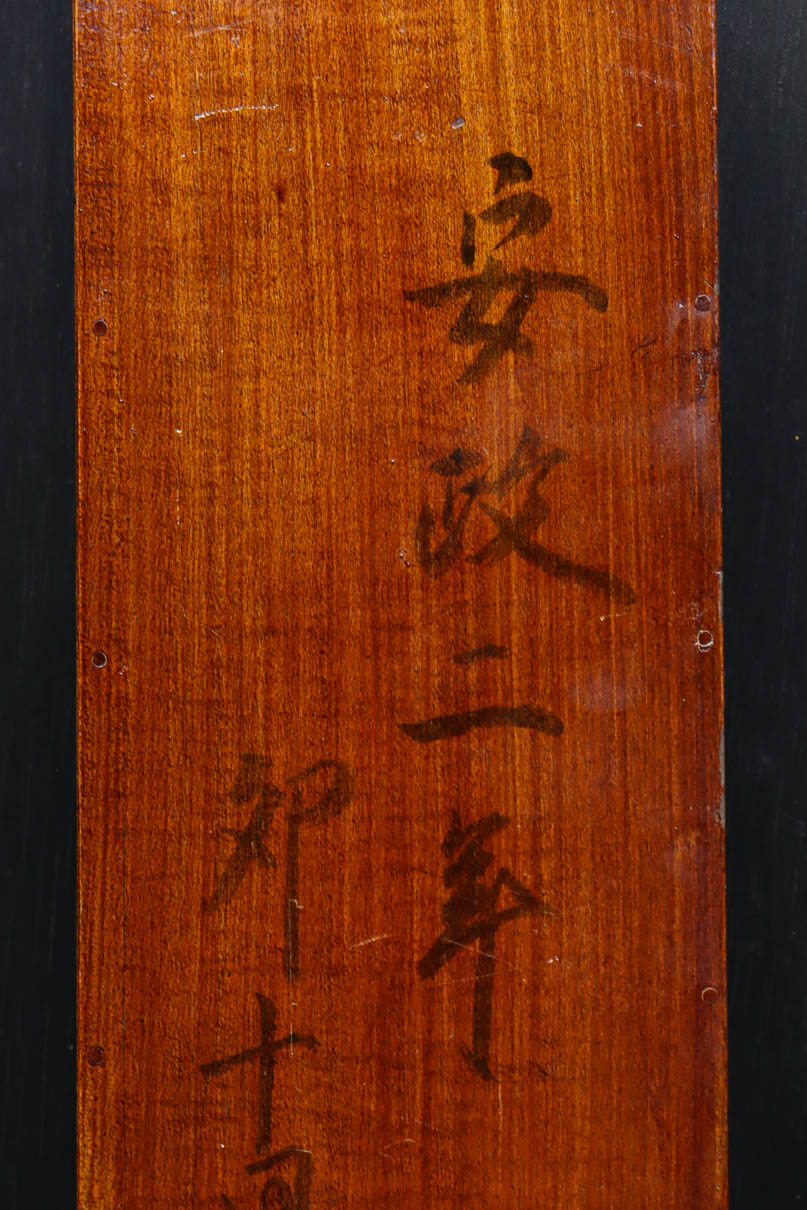 安政二年
卯十